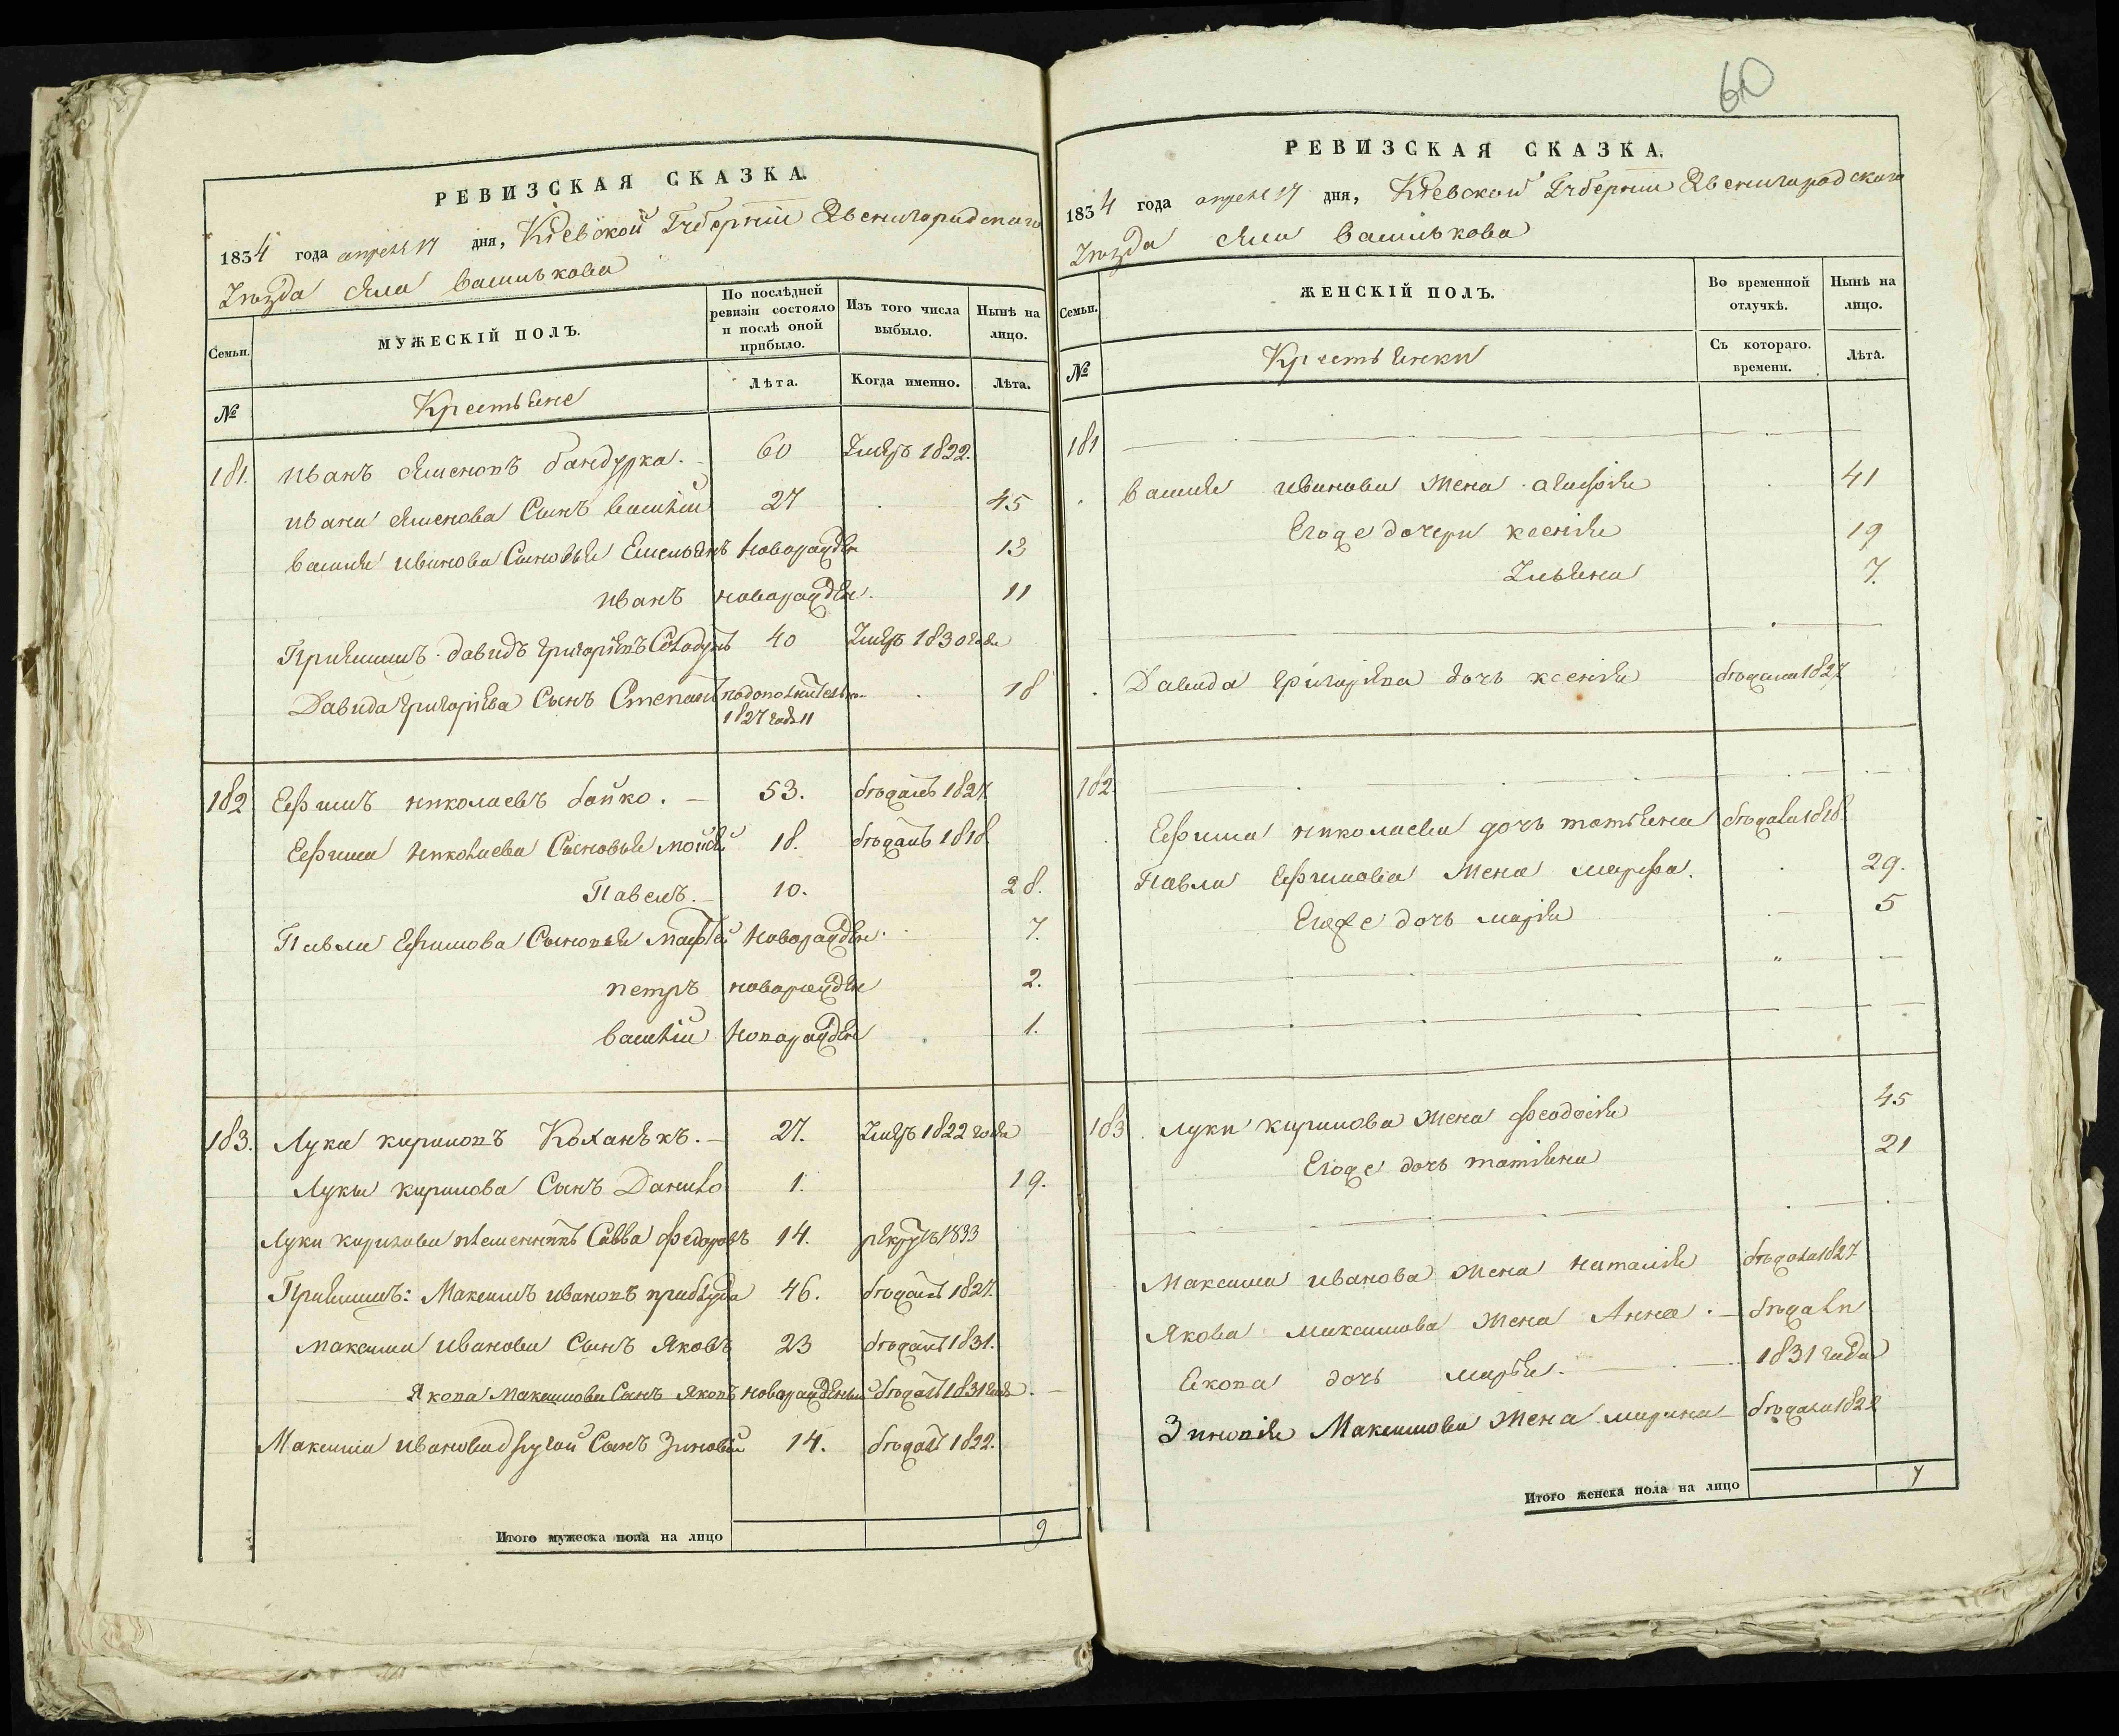 РЕВИЗСКАЯ СКАЗКА.
1834 года апреля 17 дня, Кіевской Губерніи Звенигородскаго
Уезда Села Василькова
Семьи. МУЖЕСКІЙ ПОЛЪ. По послѣдней ревизіи состояло и послѣ оной прибыло. Изъ того числа выбыло. Нынѣ на лицо.
№ Крестьяне Лѣта. Когда именно. Лѣта.
181. Иванъ Семеновъ бандурка. 60 Умеръ 1822.
Ивана Семенова Сынъ василій 27 45
василія иванова Сыновья Емельянъ новорожден 13
иванъ новорожден. 11
Давидъ григоріевъ 40 Умеръ 1830 года
Давида григоріева Сынъ Степанъ подополнительно. 18
1827 года 11
182 Ефимъ николаевъ бойко. 53. бѣжалъ 1827.
Ефима николаева Сыновья мойсей 18. бѣжалъ 1818.
Павелъ. 10. 28.
Павла Ефимова Сыновья матфей новорожден. 7.
петръ новорожден 2.
василій новорожден 1.
183. Лука кириловъ 27. Умеръ 1822 года
Луки кирилова Сынъ Данило 1. 19.
Луки кирилова племенникъ Савва федоровъ 14. рекрутъ 1833
Максимъ ивановъ приблуда 46. бѣжалъ 1827.
максима иванова Сынъ Яковъ 23 бѣжалъ 1831.
Якова максимова Сынъ Яковъ новорожденый бѣжалъ 1831 года
Максима иванова другой Сынъ Зиновій 14. бѣжалъ 1822.
Итого мужеска пола на лицо 9
60
РЕВИЗСКАЯ СКАЗКА.
1834 года апреля 17 дня, Кіевской Губерніи Звенигородскаго
Уезда Села Василькова
Семьи. ЖЕНСКІЙ ПОЛЪ. Во временной отлучкѣ. Нынѣ на лицо.
№ Крестьянки Съ котораго. времени. Лѣта.
181
василія иванова жена 41
Егоже дочери ксенія 19
Ульяна 7.
Давида григорьева дочь ксенія бѣжала 1827
182.
Ефима николаева дочь татіяна бѣжала 1818.
Павла Ефимова жена марфа. 29.
Егоже дочь марія 5
183. луки кирилова жена феодосія 45
Егоже дочь татіяна 21
Максима иванова жена наталія бѣжала 1827
Якова максимова жена Анна бѣжали
Якова дочь марія. 1831 года
Зиновія Максимова жена марина бѣжала 1822
Итого женска пола на лицо 7